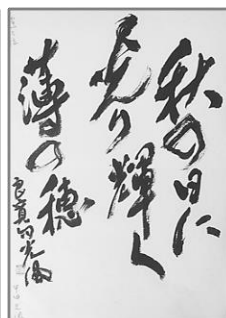 秋の日に
光り輝く
薄の穂
良寛